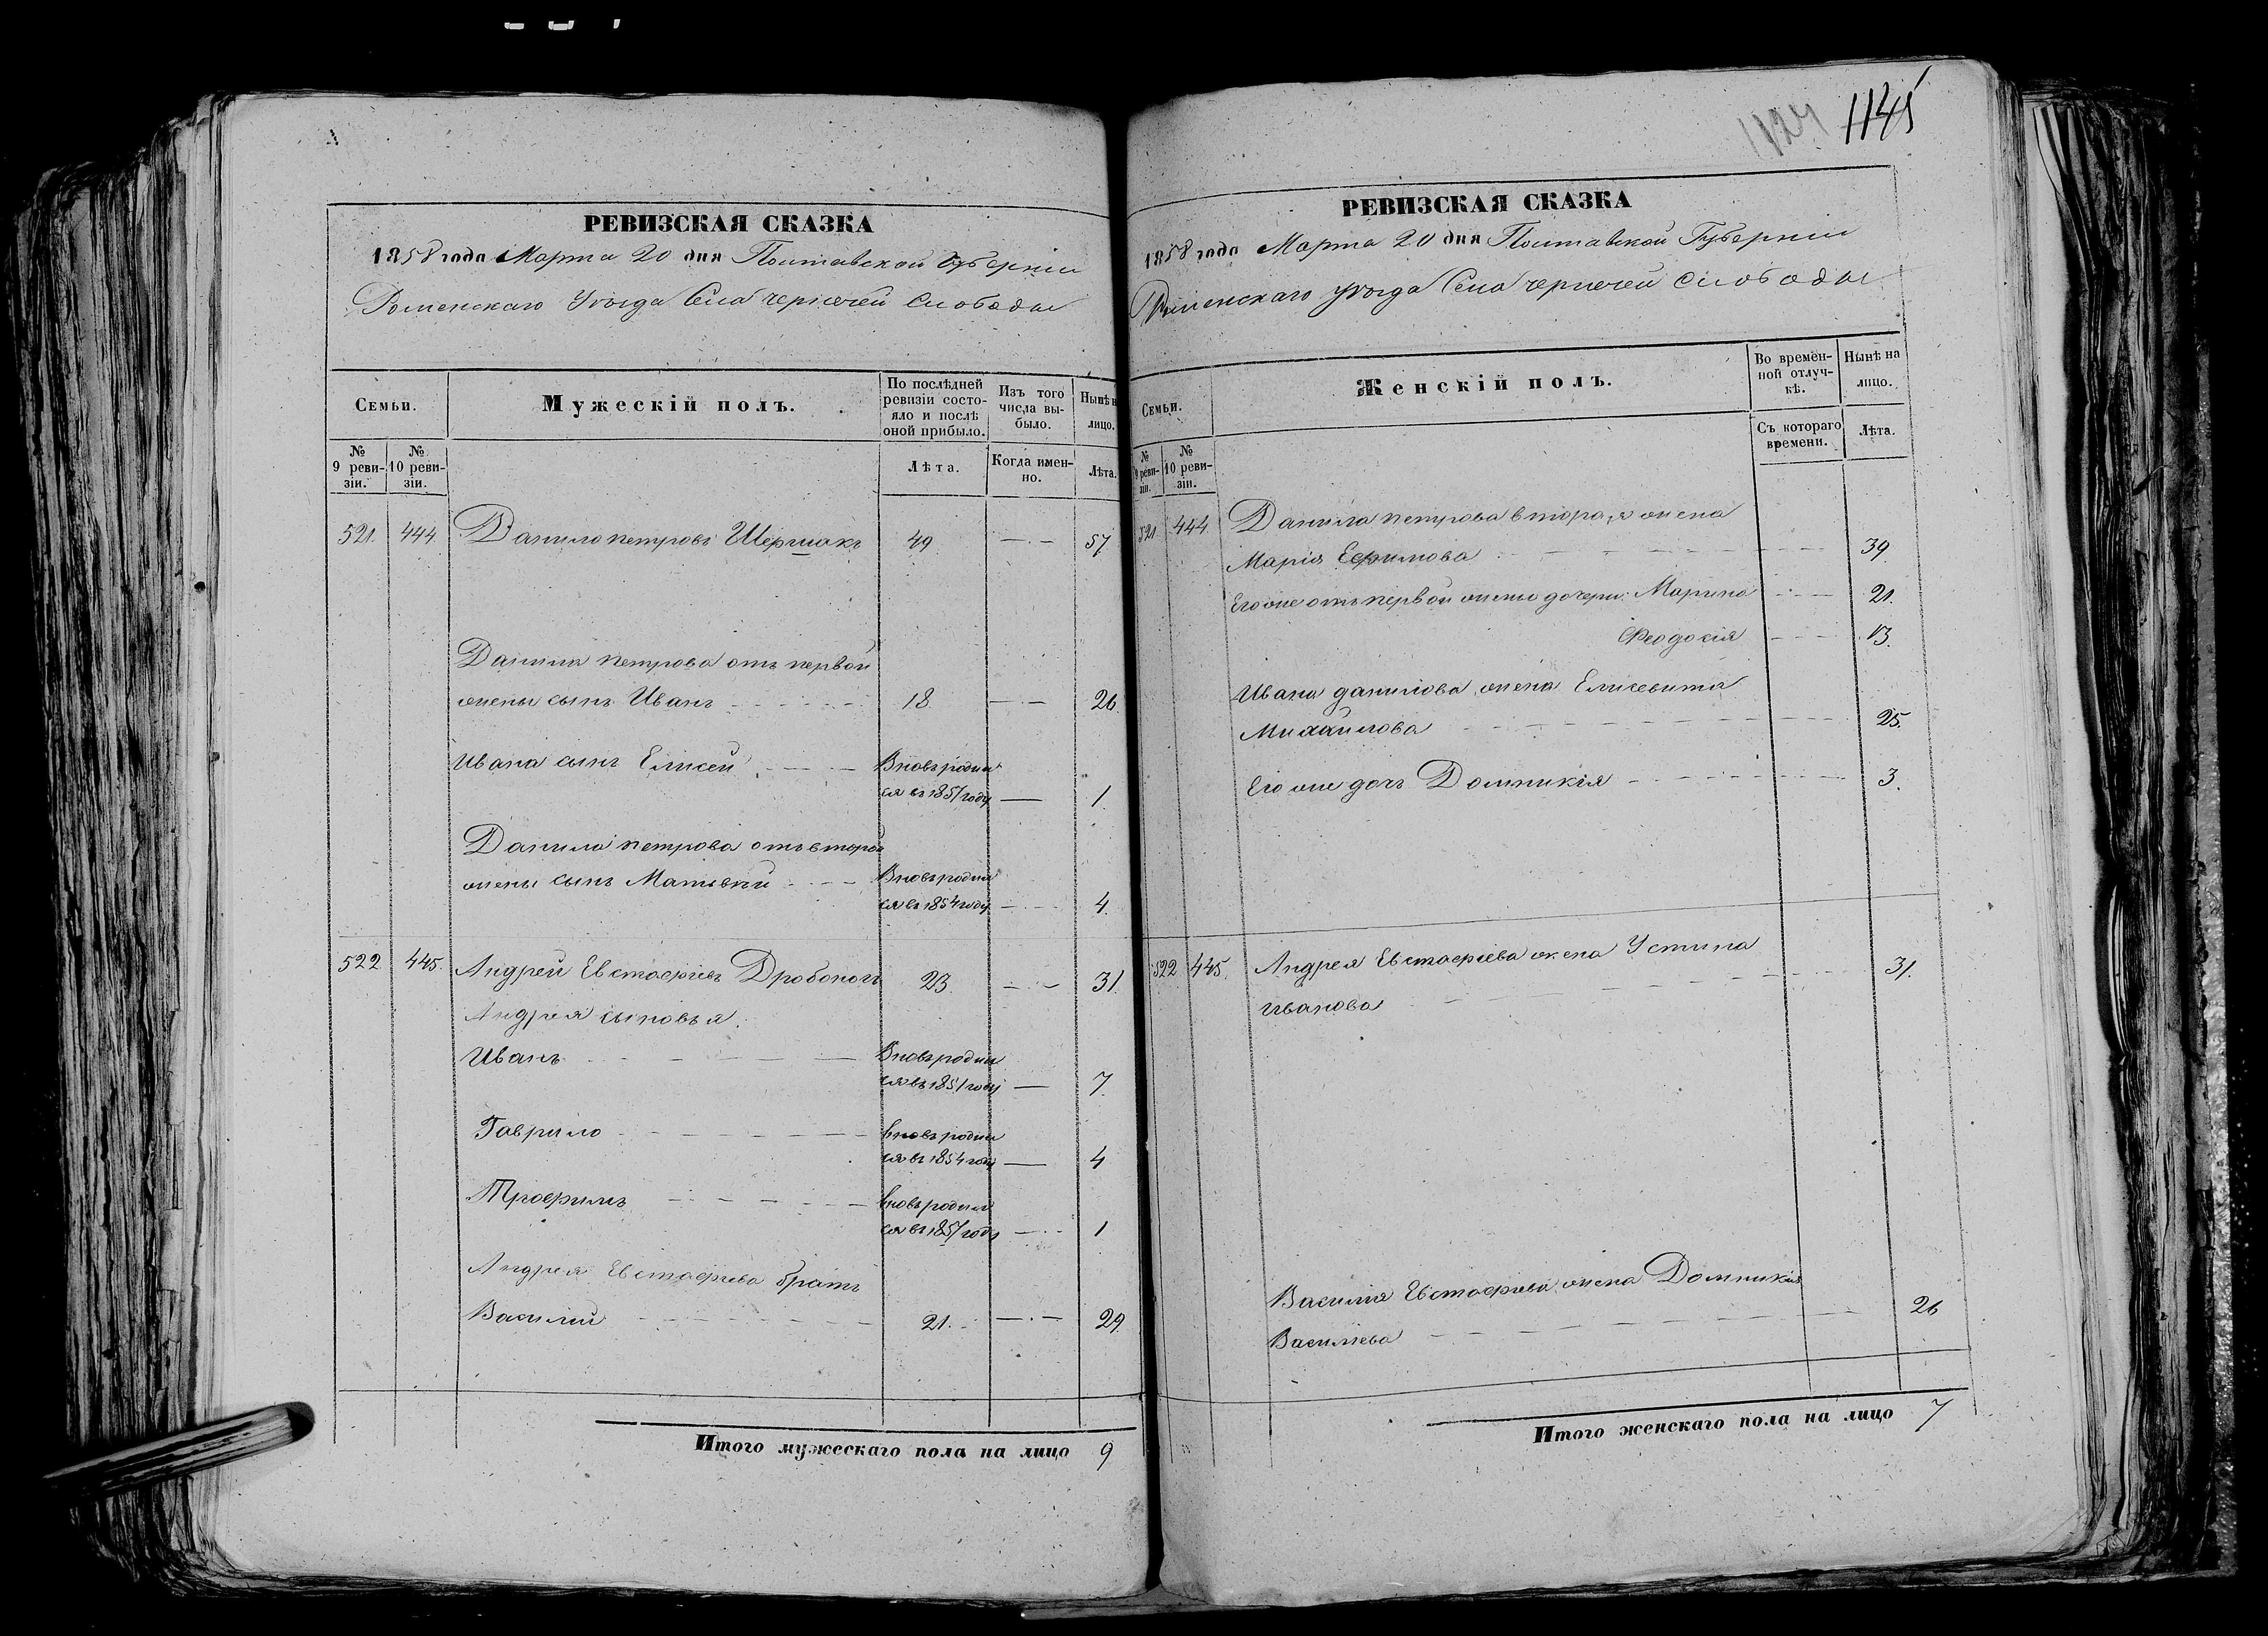 1124 1145
РЕВИЗСКАЯ СКАЗКА
1858 года Марта 20 дня Полтавской Губерніи
Роменскаго Уѣзда Села Чернечей Слободы
Семьи.
Мужескій полъ.
По послѣдней ревизіи состояло и послѣ оной прибыло.
Изъ того числа выбыло.
Нынѣ на лицо.
№ 9 ревизіи.
№ 10 ревизіи.
Лѣта.
Когда именно.
Лѣта.
521. 444. Данило петровъ Шершакъ 49 57
Данила петрова отъ первой
жены сынъ Иванъ 18 26.
Ивана сынъ Елисей Вновь родил
ся въ 1857 году 1.
Данила петрова отъ второй
жены сынъ Матвѣй Вновь родил
ся въ 1854 году 4.
522 445. Андрей Евстафіевъ Дробоногъ 23 31.
Андрея сыновья.
Иванъ Вновь родил
ся въ 1851 году 7.
Гаврило вновь родил
ся въ 1854 году 4
Трофимъ вновь родил
ся въ 1857 году 1
Андрея Евстафіева братъ
Василій 21. 29.
Итого мужескаго пола на лицо 9
РЕВИЗСКАЯ СКАЗКА
1858 года Марта 20 дня Полтавской Губерніи
Роменскаго Уѣзда Села Чернечей Слободы
Семьи.
Женскій полъ.
Во временной отлучкѣ.
Нынѣ на лицо.
№ 9 ревизіи.
№ 10 ревизіи.
Съ котораго времени.
Лѣта.
521 444. Данила петрова вторая жена
Марія Ефимова 39.
Его же отъ первой жены дочери: Марина 21.
Феодосія 13.
Ивана данилова жена Елисевита
Михайлова 25.
Его же дочь Домникія 3.
522 445. Андрея Евстафіева жена Устина 31.
Иванова
Василія Евстафіева жена Домникия 26
Василіева
Итого женскаго пола на лицо 7